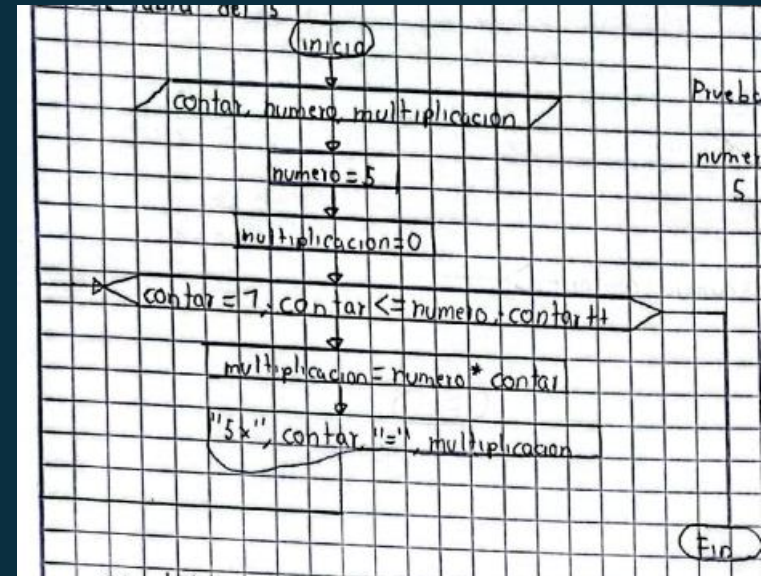 tabla del 5
inicio
contar, numero, multiplicacion
Prueba
numero = 5
5
multiplicacion=0
contar = 1, contar <= numero, contar++
multiplicacion = numero * contar
"5x", contar, "=", multiplicacion
Fin